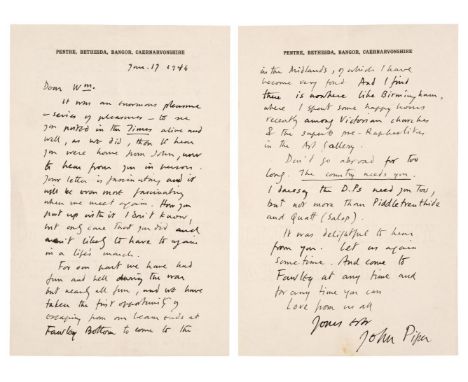 PENTRE, BETHESDA, BANGOR, CAERNARVONSHIRE
June 17 1946
Dear Wm.
It was an enormous pleasure
– series of pleasures – to see
you posted in the Times alive and
well, as we did, then to hear
you were home from John, now
to hear from you in person.
Your letter is fascinating and it
will be even most fascinating
when we meet again. How you
put up with it I don't know,
but only care that you did and
aren't likely to have to again
in a life's march.
For our part we have had
fun and hell during the war
but nearly all fun, and we have
taken the first opportunity of
escaping from our beam ends at
Fawley Bottom to come to the
PENTRE, BETHESDA, BANGOR, CAERNARVONSHIRE
in the Midlands, of which I have
become very fond. And I find
there is nowhere like Birmingham,
where I spent some happy hours
recently among Victorian churches
& the superb pre-Raphaelites
in the Art Gallery.
Don't go abroad for too
long. The country needs you.
I daresay the D.Ps need you too,
but not more than Piddletrenthide
and Quatt (Salop).
It was delightful to hear
from you. Let us again
sometime. And come to
Fawley at any time and
for any time you can
Love from us all
Yours ever
John Piper